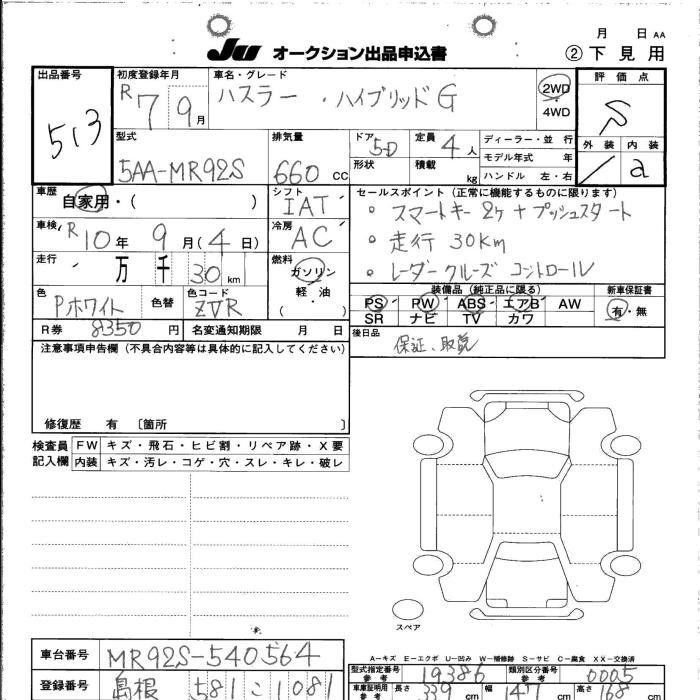 月 日 AA
JU オークション出品申込書 ② 下見用
出品番号 513
初度登録年月 R7 9月
車名・グレード ハスラー ・ハイブリッドG
2WD
4WD
評価点 S
外装 内装 a
型式 5AA-MR92S
排気量 660cc
ドア 5D
形状
定員 4人
積載 kg
ディーラー・並行
モデル年式 年
ハンドル 左・右
車歴 自家用・( )
シフト IAT
車検 R10年 9月(4日)
冷房 AC
走行 万 千 30km
燃料 ガソリン
軽油
( )
色 Pホワイト 色替 色コード ZVR
R券 8350円 名変通知期限 月 日
セールスポイント(正常に機能するものに限ります)
○ スマートキー2ケ+プッシュスタート
○ 走行 30Km
○ レーダークルーズコントロール
装備品(純正品に限る) 新車保証書
PS PW ABS エアB AW 有・無
SR ナビ TV カワ
後日品 保証、取説
注意事項申告欄(不具合内容等は具体的に記入してください)
修復歴 有 [箇所 ]
検査員 FW キズ・飛石・ヒビ割・リペア跡・X要
記入欄 内装 キズ・汚レ・コゲ・穴・スレ・キレ・破レ
スペア
A-キズ E-エクボ U-凹み W-補修跡 S-サビ C-腐食 XX-交換済
車台番号 MR92S-540564
型式指定番号 参考 19386 類別区分番号 参考 0005
登録番号 島根 581 こ 1081
車庫証明用 参考 長さ 339cm 幅 147cm 高さ 168cm